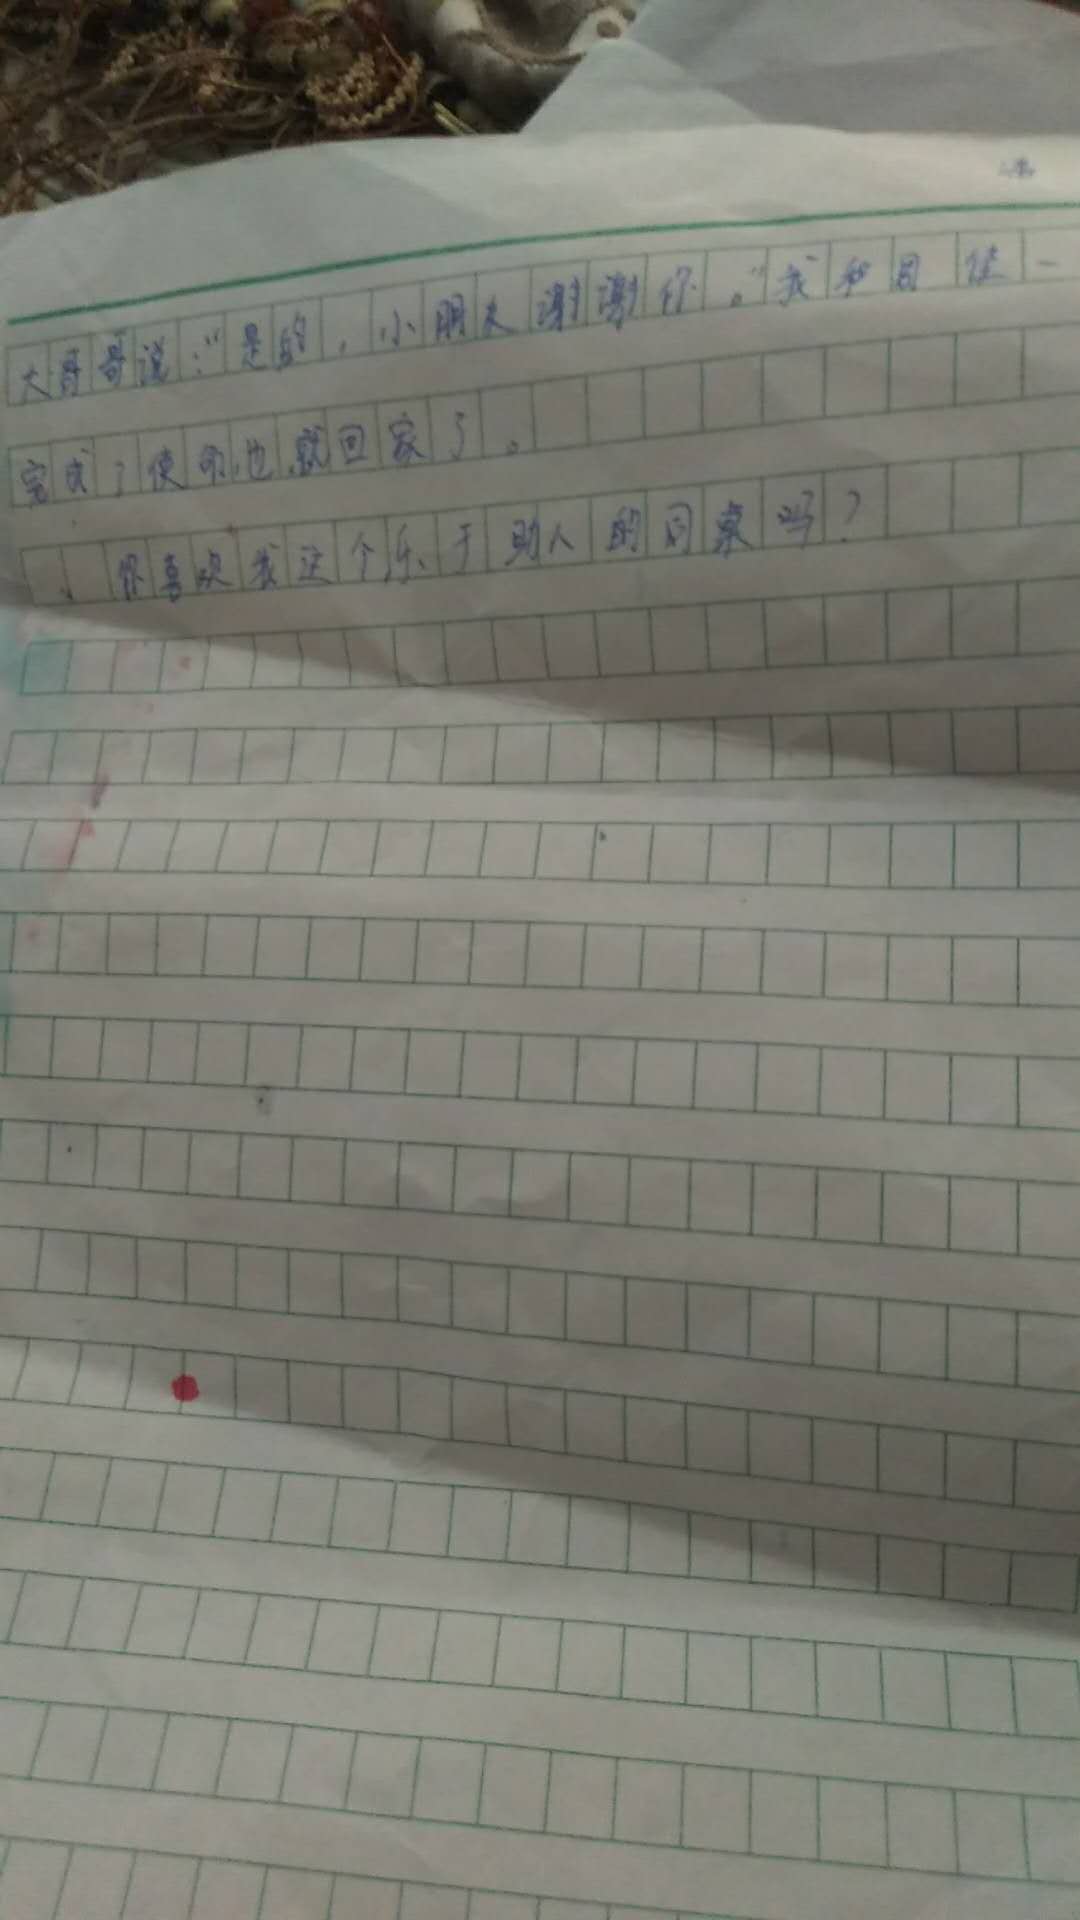 大哥哥说:“是的,小朋友谢谢你。”我和目佳一
完成了使命,也就回家了。
你喜欢我这个乐于助人的同桌吗?